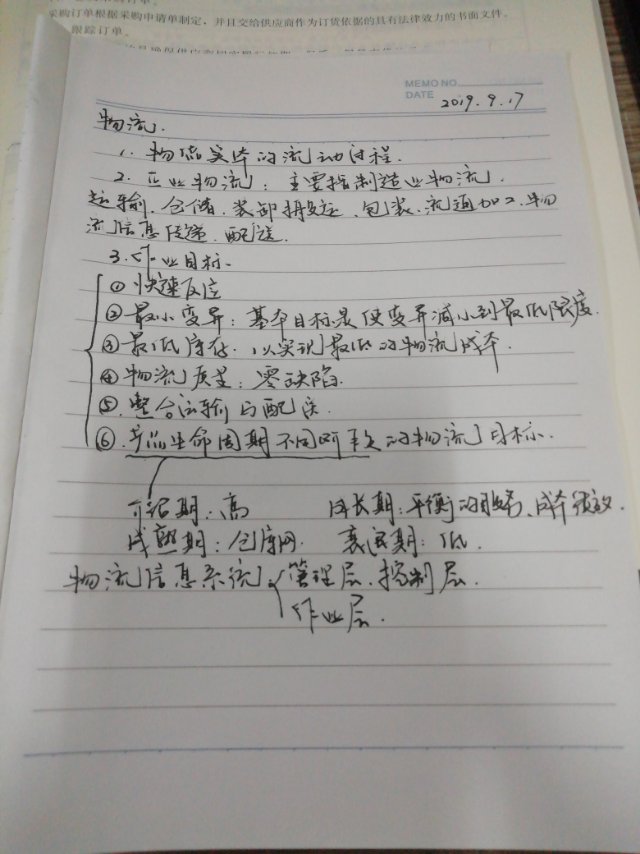 采购订单根据采购申请单制定，并且交给供应商作为订货依据的具有法律效力的书面文件。
跟踪订单。
MEMO NO.
DATE 2019.9.17
物流.
1. 物品实体的流动过程.
2. 企业物流：主要指制造业物流.
运输.仓储.装卸搬运.包装.流通加工.物
流信息传递.配送.
3.作业目标.
①快速反应
②最小变异：基本目标是使变异减小到最低限度.
③最低库存.以实现最低的物流成本.
④物流质量：零缺陷.
⑤.整合运输与配送
⑥.产品生命周期不同阶段的物流目标.
介绍期：高 成长期：平衡的服务、成本绩效.
成熟期：仓库网. 衰退期：低.
物流信息系统. 管理层.控制层.
作业层.